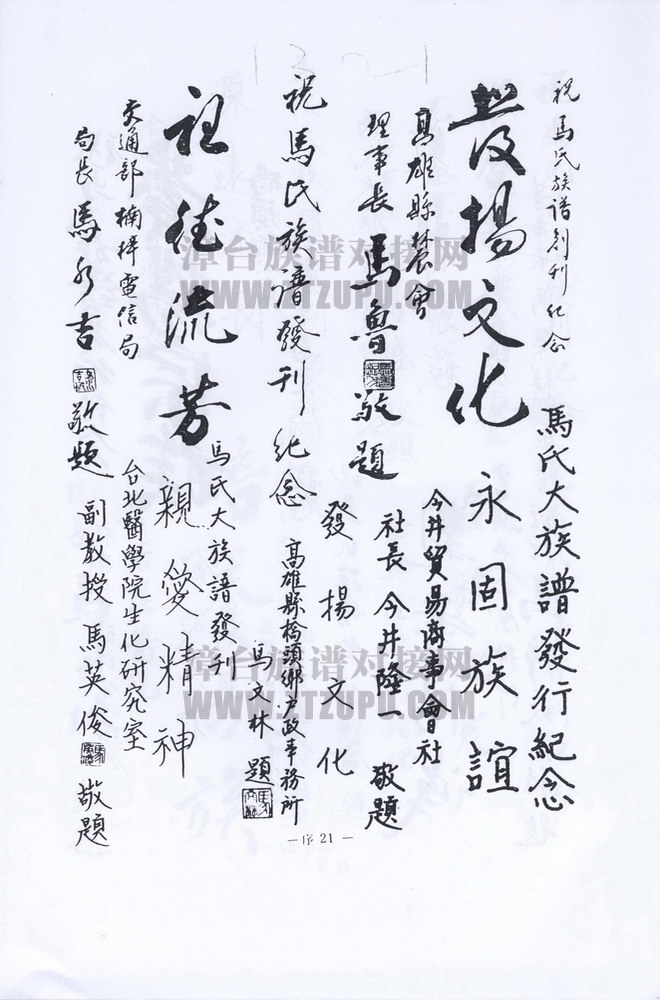 祝馬氏族譜創刊紀念
發揚文化
高雄縣農會
理事長 馬魯 敬題
祝馬氏族譜發刊紀念
祖德流芳
交通部楠梓電信局
局長 馬永吉 敬題
馬氏大族譜發行紀念
永固族誼
今井貿易商事會社
社長 今井隆一 敬題
發揚文化
高雄縣橋頭鄉戶政事務所
馬文林 題
馬氏大族譜發刊
親愛精神
台北醫學院生化研究室
副教授 馬英俊 敬題
漳台族谱对接网
WWW.ZTZUPU.COM
漳台族谱对接网
WWW.ZTZUPU.COM
—序 21 —